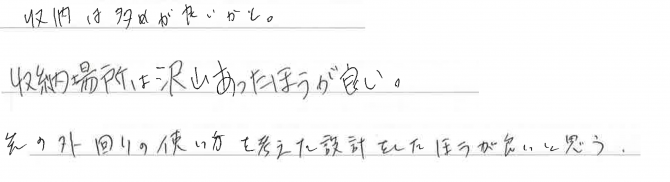 収納は多めが良いかと。
収納場所は沢山あったほうが良い。
家の外回りの使い方を考えた設計をしたほうが良いと思う.